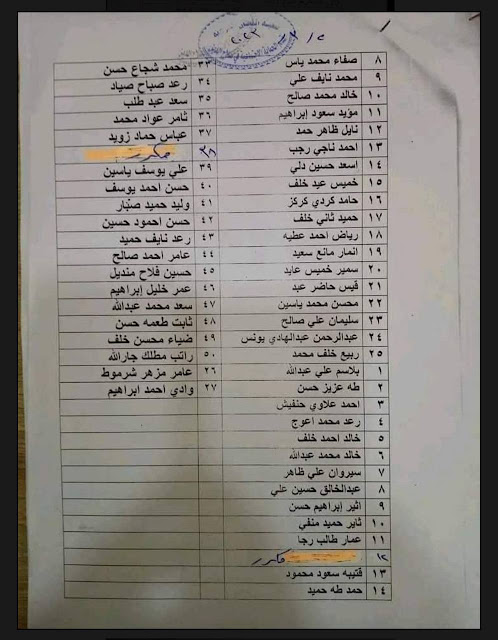 ٢٠٢٣
٨ صفاء محمد ياس
٩ محمد نايف علي
١٠ خالد محمد صالح
١١ مؤيد سعود إبراهيم
١٢ نايل ظاهر حمد
١٣ احمد ناجي رجب
١٤ اسعد حسين دلي
١٥ خميس عبد خلف
١٦ حامد كردي كركز
١٧ حميد ثاني خلف
١٨ رياض احمد عطيه
١٩ انمار مانع سعيد
٢٠ سمير خميس عابد
٢١ قيس حاضر عبد
٢٢ محسن محمد ياسين
٢٣ سليمان علي صالح
٢٤ عبدالرحمن عبدالهادي يونس
٢٥ ربيع خلف محمد
١ بلاسم علي عبدالله
٢ طه عزيز حسن
٣ احمد علاوي حنفيش
٤ رعد محمد اعوج
٥ خالد احمد خلف
٦ خالد محمد عبدالله
٧ سيروان علي ظاهر
٨ عبدالخالق حسين علي
٩ اثير إبراهيم حسن
١٠ ثاير حميد منفي
١١ عمار طالب رجا
١٢ مكرر
١٣ قتيبه سعود محمود
١٤ حمد طه حميد
٣٣ محمد شجاع حسن
٣٤ رعد صباح صياد
٣٥ سعد عبد طلب
٣٦ ثامر عواد محمد
٣٧ عباس حماد زويد
٣٨ مكرر
٣٩ علي يوسف ياسين
٤٠ حسن احمد يوسف
٤١ وليد حميد صبّار
٤٢ حسن احمود حسين
٤٣ رعد نايف حميد
٤٤ عامر احمد صالح
٤٥ حسين فلاح منديل
٤٦ عمر خليل إبراهيم
٤٧ سعد محمد عبدالله
٤٨ ثابت طعمه حسن
٤٩ ضياء محسن خلف
٥٠ راتب مطلك جارالله
٢٦ عامر مزهر شرموط
٢٧ وادي احمد ابراهيم